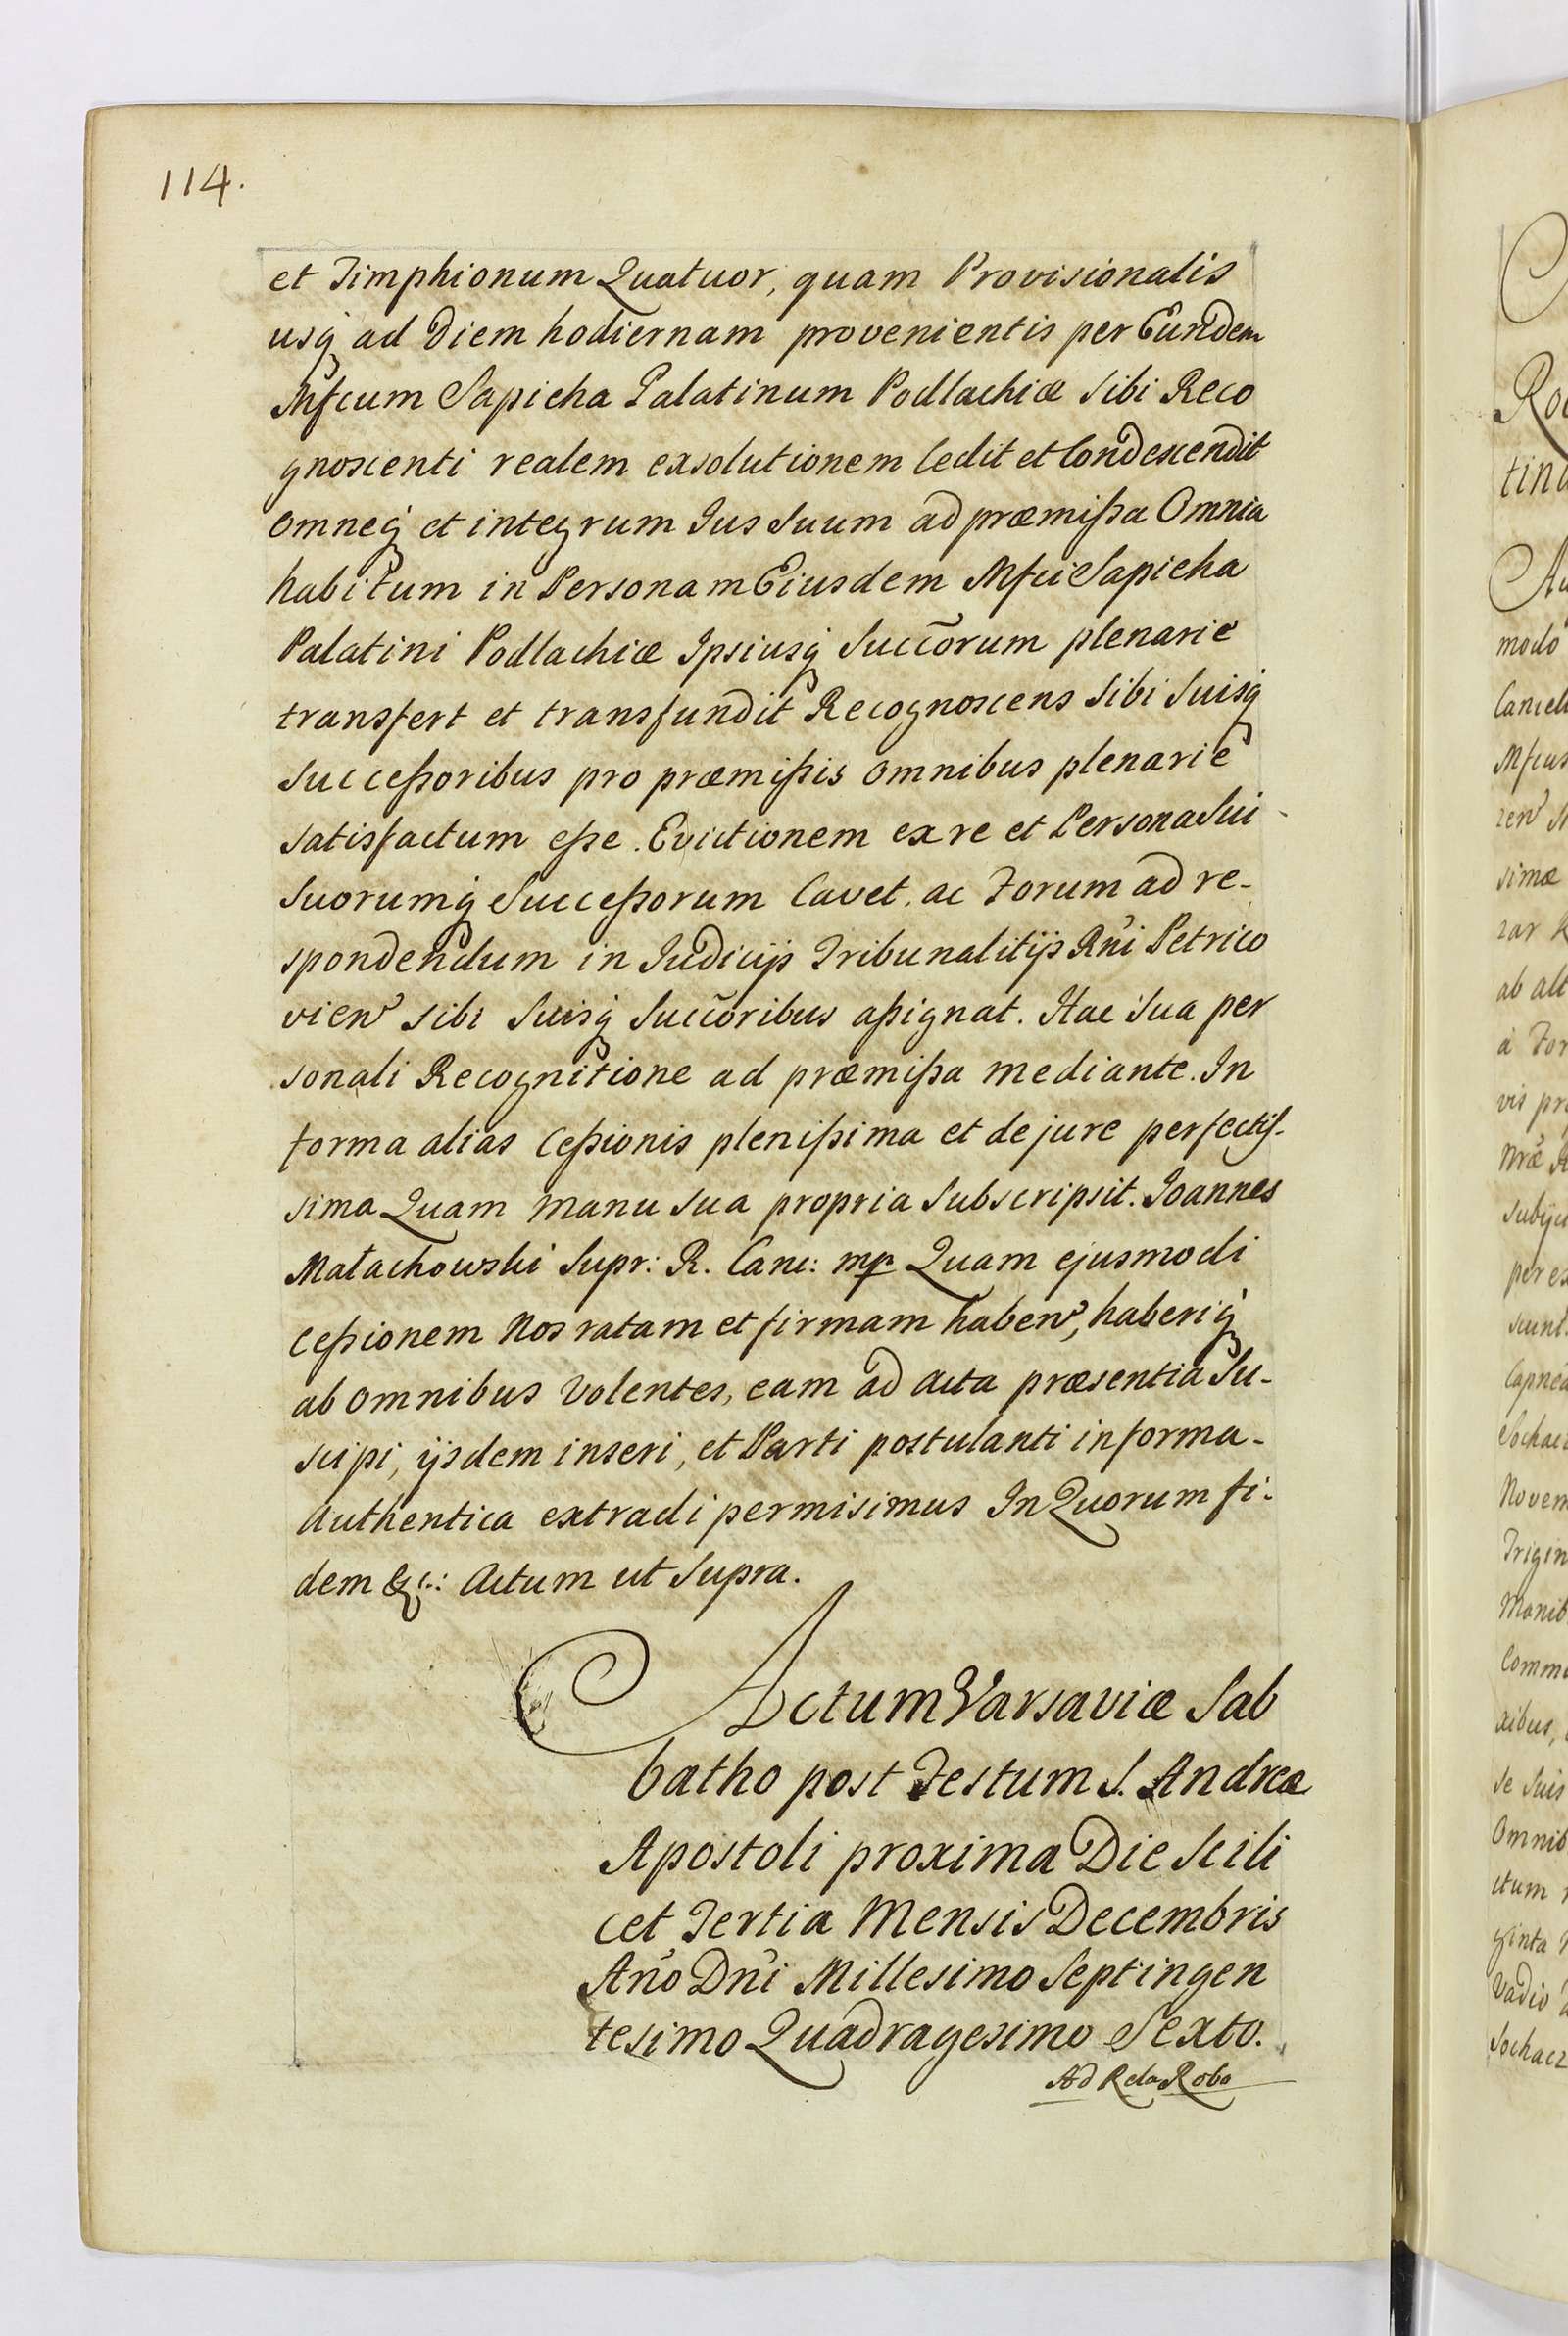 114.
et Timphionum Quatuor, quam Provisionalis
usq ad Diem hodiernam provenientis per Eundem
Mfcum Sapieha Palatinum Podlachiæ sibi Reco
gnoscenti realem exsolutionem Cedit et Condescendit
Omneq et integrum Jus Suum ad præmißa Omnia
habitum in Personam Eiusdem Mfci Sapieha
Palatini Podlachiæ Ipsiusq Succorum plenarie
transfert et transfundit Recognoscens Sibi Suisq
Succeßoribus pro præmißis omnibus plenarie
satisfactum eße. Evictionem ex re et Persona Sui
Suorumq Succeßorum Cavet, ac Forum ad re-
spondendum in Judicijs Tribunalitijs Rni Petrico
vien sibi Suisq Succoribus aßignat. Hac Sua per
sonali Recognitione ad præmißa mediante. In
forma alias Ceßionis plenißima et de jure perfectiss-
sima Quam manu sua propria Subscripsit. Joannes
Małachowski Supr: R. Canc: mp Quam ejusmodi
Ceßionem Nos ratam et firmam haben, haberiq
ab omnibus Volentes, eam ad acta præsentia Su-
scipi, ijsdem inseri, et Parti postulanti in forma-
Authentica extradi permisimus In Quorum fi-
dem &c: Actum ut Supra.
Actum Varsaviæ Sab
batho post Festum S. Andreæ
Apostoli proxima Die Scili
cet Tertia Mensis Decembris
Año Dñi Millesimo Septingen
tesimo Quadragesimo Sexto.
Ad Rela Roba
tin
modo
Mfcus
simæ
ab alt
vis pr
per e
Novem
Trigin
Omnib
Vadio
Sochacz